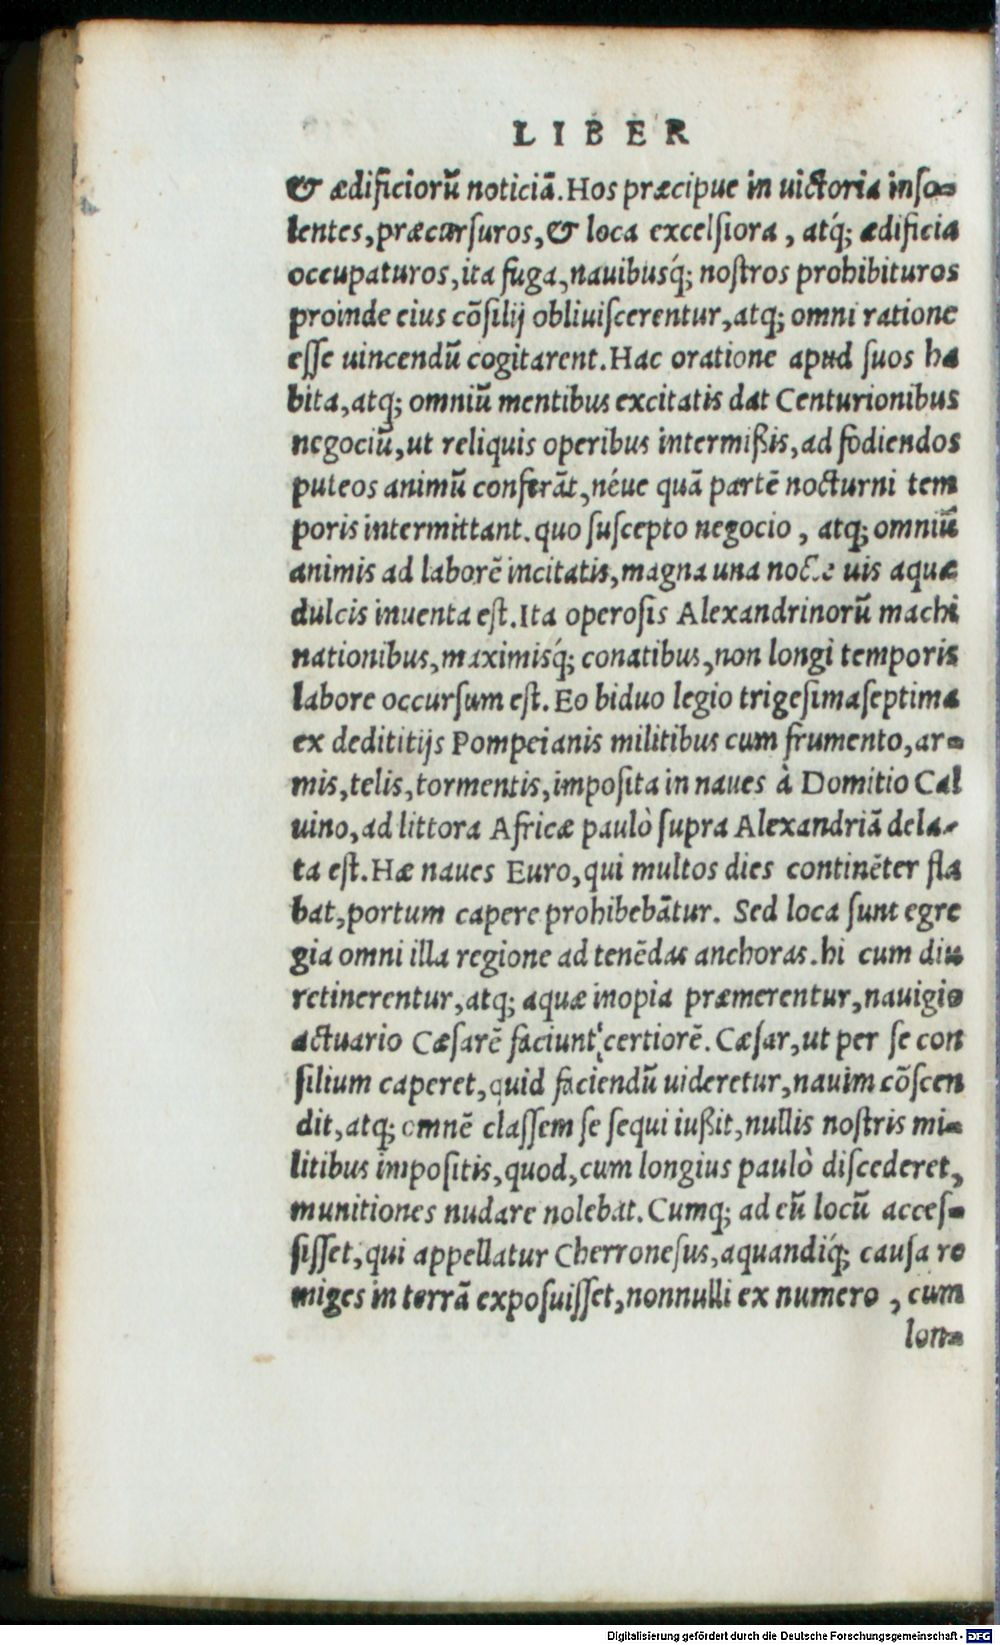 LIBER
& ædificiorũ noticiã. Hos præcipue in uictoria inso-
lentes, præcursuros, & loca excelsiora, atq́; ædificia
occupaturos, ita fuga, nauibusq́; nostros prohibituros
proinde eius cõsilij obliuiscerentur, atq; omni ratione
esse uincendũ cogitarent. Hac oratione apud suos ha
bita, atq; omniũ mentibus excitatis dat Centurionibus
negociũ, ut reliquis operibus intermißis, ad fodiendos
puteos animũ conferãt, néue quã partẽ nocturni tem
poris intermittant. quo suscepto negocio, atq; omniũ
animis ad laborẽ incitatis, magna una nocte uis aquæ
dulcis inuenta est. Ita operosis Alexandrinorũ machi
nationibus, maximisq́; conatibus, non longi temporis
labore occursum est. Eo biduo legio trigesimaseptima
ex dedititijs Pompeianis militibus cum frumento, ar-
mis, telis, tormentis, imposita in naues à Domitio Cal
uino, ad littora Africæ paulò supra Alexandriã dela-
ta est. Hæ naues Euro, qui multos dies continẽter fla
bat, portum capere prohibebãtur. Sed loca sunt egre
gia omni illa regione ad tenẽdas anchoras. hi cum diu
retinerentur, atq; aquæ inopia præmerentur, nauigio
actuario Cæsarẽ faciunt certiorẽ. Cæsar, ut per se con
silium caperet, quid faciendũ uideretur, nauim cõscen
dit, atq; omnẽ classem se sequi iußit, nullis nostris mi-
litibus impositis, quod, cum longius paulò discederet,
munitiones nudare nolebat. Cumq; ad eũ locũ acces-
sisset, qui appellatur Cherronesus, aquandiq́; causa re
miges in terrã exposuisset, nonnulli ex numero, cum
lon-
Digitalisierung gefördert durch die Deutsche Forschungsgemeinschaft - DFG